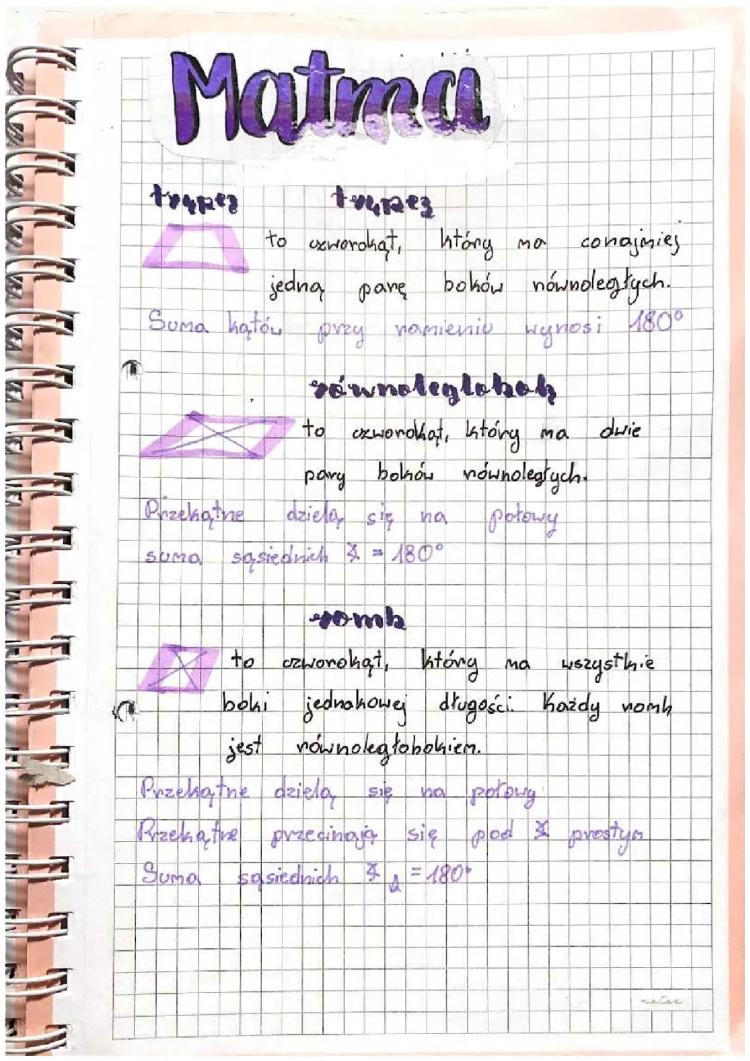 Matma
trapez trapez
to czworokąt, który ma conajmniej
jedną parę boków równoległych.
Suma kątów przy ramieniu wynosi 180°
równoległobok
to czworokąt, który ma dwie
pary boków równoległych.
Przekątne dzielą się na połowy
suma sąsiednich ∡ = 180°
romb
to czworokąt, który ma wszystkie
boki jednakowej długości. Każdy romb
jest równoległobokiem.
Przekątne dzielą się na połowy
Przekątne przecinają się pod ∡ prostym
Suma sąsiednich ∡ = 180°